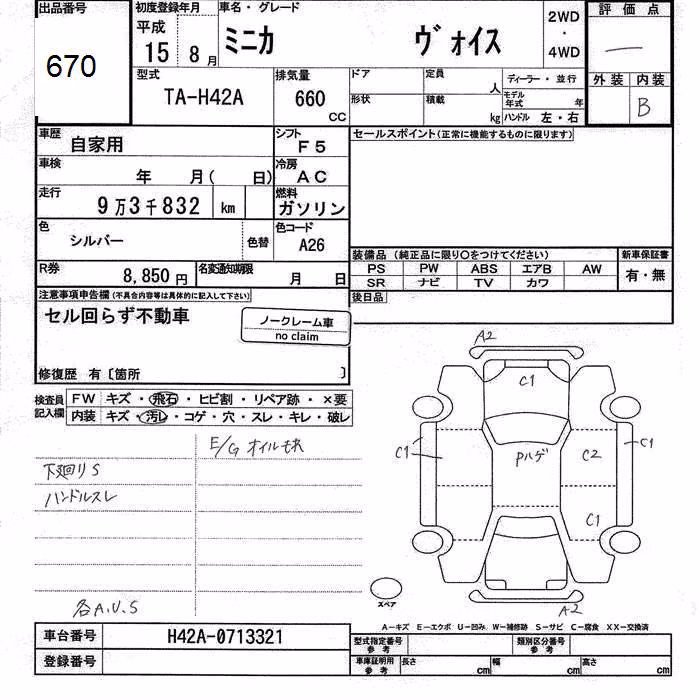 出品番号 初度登録年月 車名・グレード 2WD ・ 4WD 評価点
670 平成 15 8月 ミニカ ヴォイス
型式 排気量 ドア 定員 人 ディーラー・並行 外装 内装
TA-H42A 660 CC 形状 積載 kg モデル年式 年 B
ハンドル 左・右
車歴 自家用 シフト F5 セールスポイント(正常に機能するものに限ります)
車検 年 月( 日) 冷房 AC
走行 9万3千832 km 燃料 ガソリン
色 シルバー 色替 色コード A26
装備品 (純正品に限り○をつけてください) 新車保証書
PS PW ABS エアB AW 有・無
SR ナビ TV カワ
R券 8,850円 名変通知期限 月 日
後日品
注意事項申告欄(不具合内容等は具体的に記入して下さい)
セル回らず不動車
ノークレーム車
no claim
修復歴 有〔箇所 〕
検査員記入欄 FW キズ・飛石・ヒビ割・リペア跡・×要
内装 キズ・汚レ・コゲ・穴・スレ・キレ・破レ
E/G オイルモレ
下廻りS
ハンドルスレ
各A.U.S
A2
C1
C1 Pハゲ C2 C1
C1
スペア
A2
A―キズ E―エクボ U―凹み W―補修跡 S―サビ C―腐食 XX―交換済
車台番号 H42A-0713321 型式指定番号 参考 類別区分番号 参考
登録番号 車庫証明用 参考 長さ cm 幅 cm 高さ cm